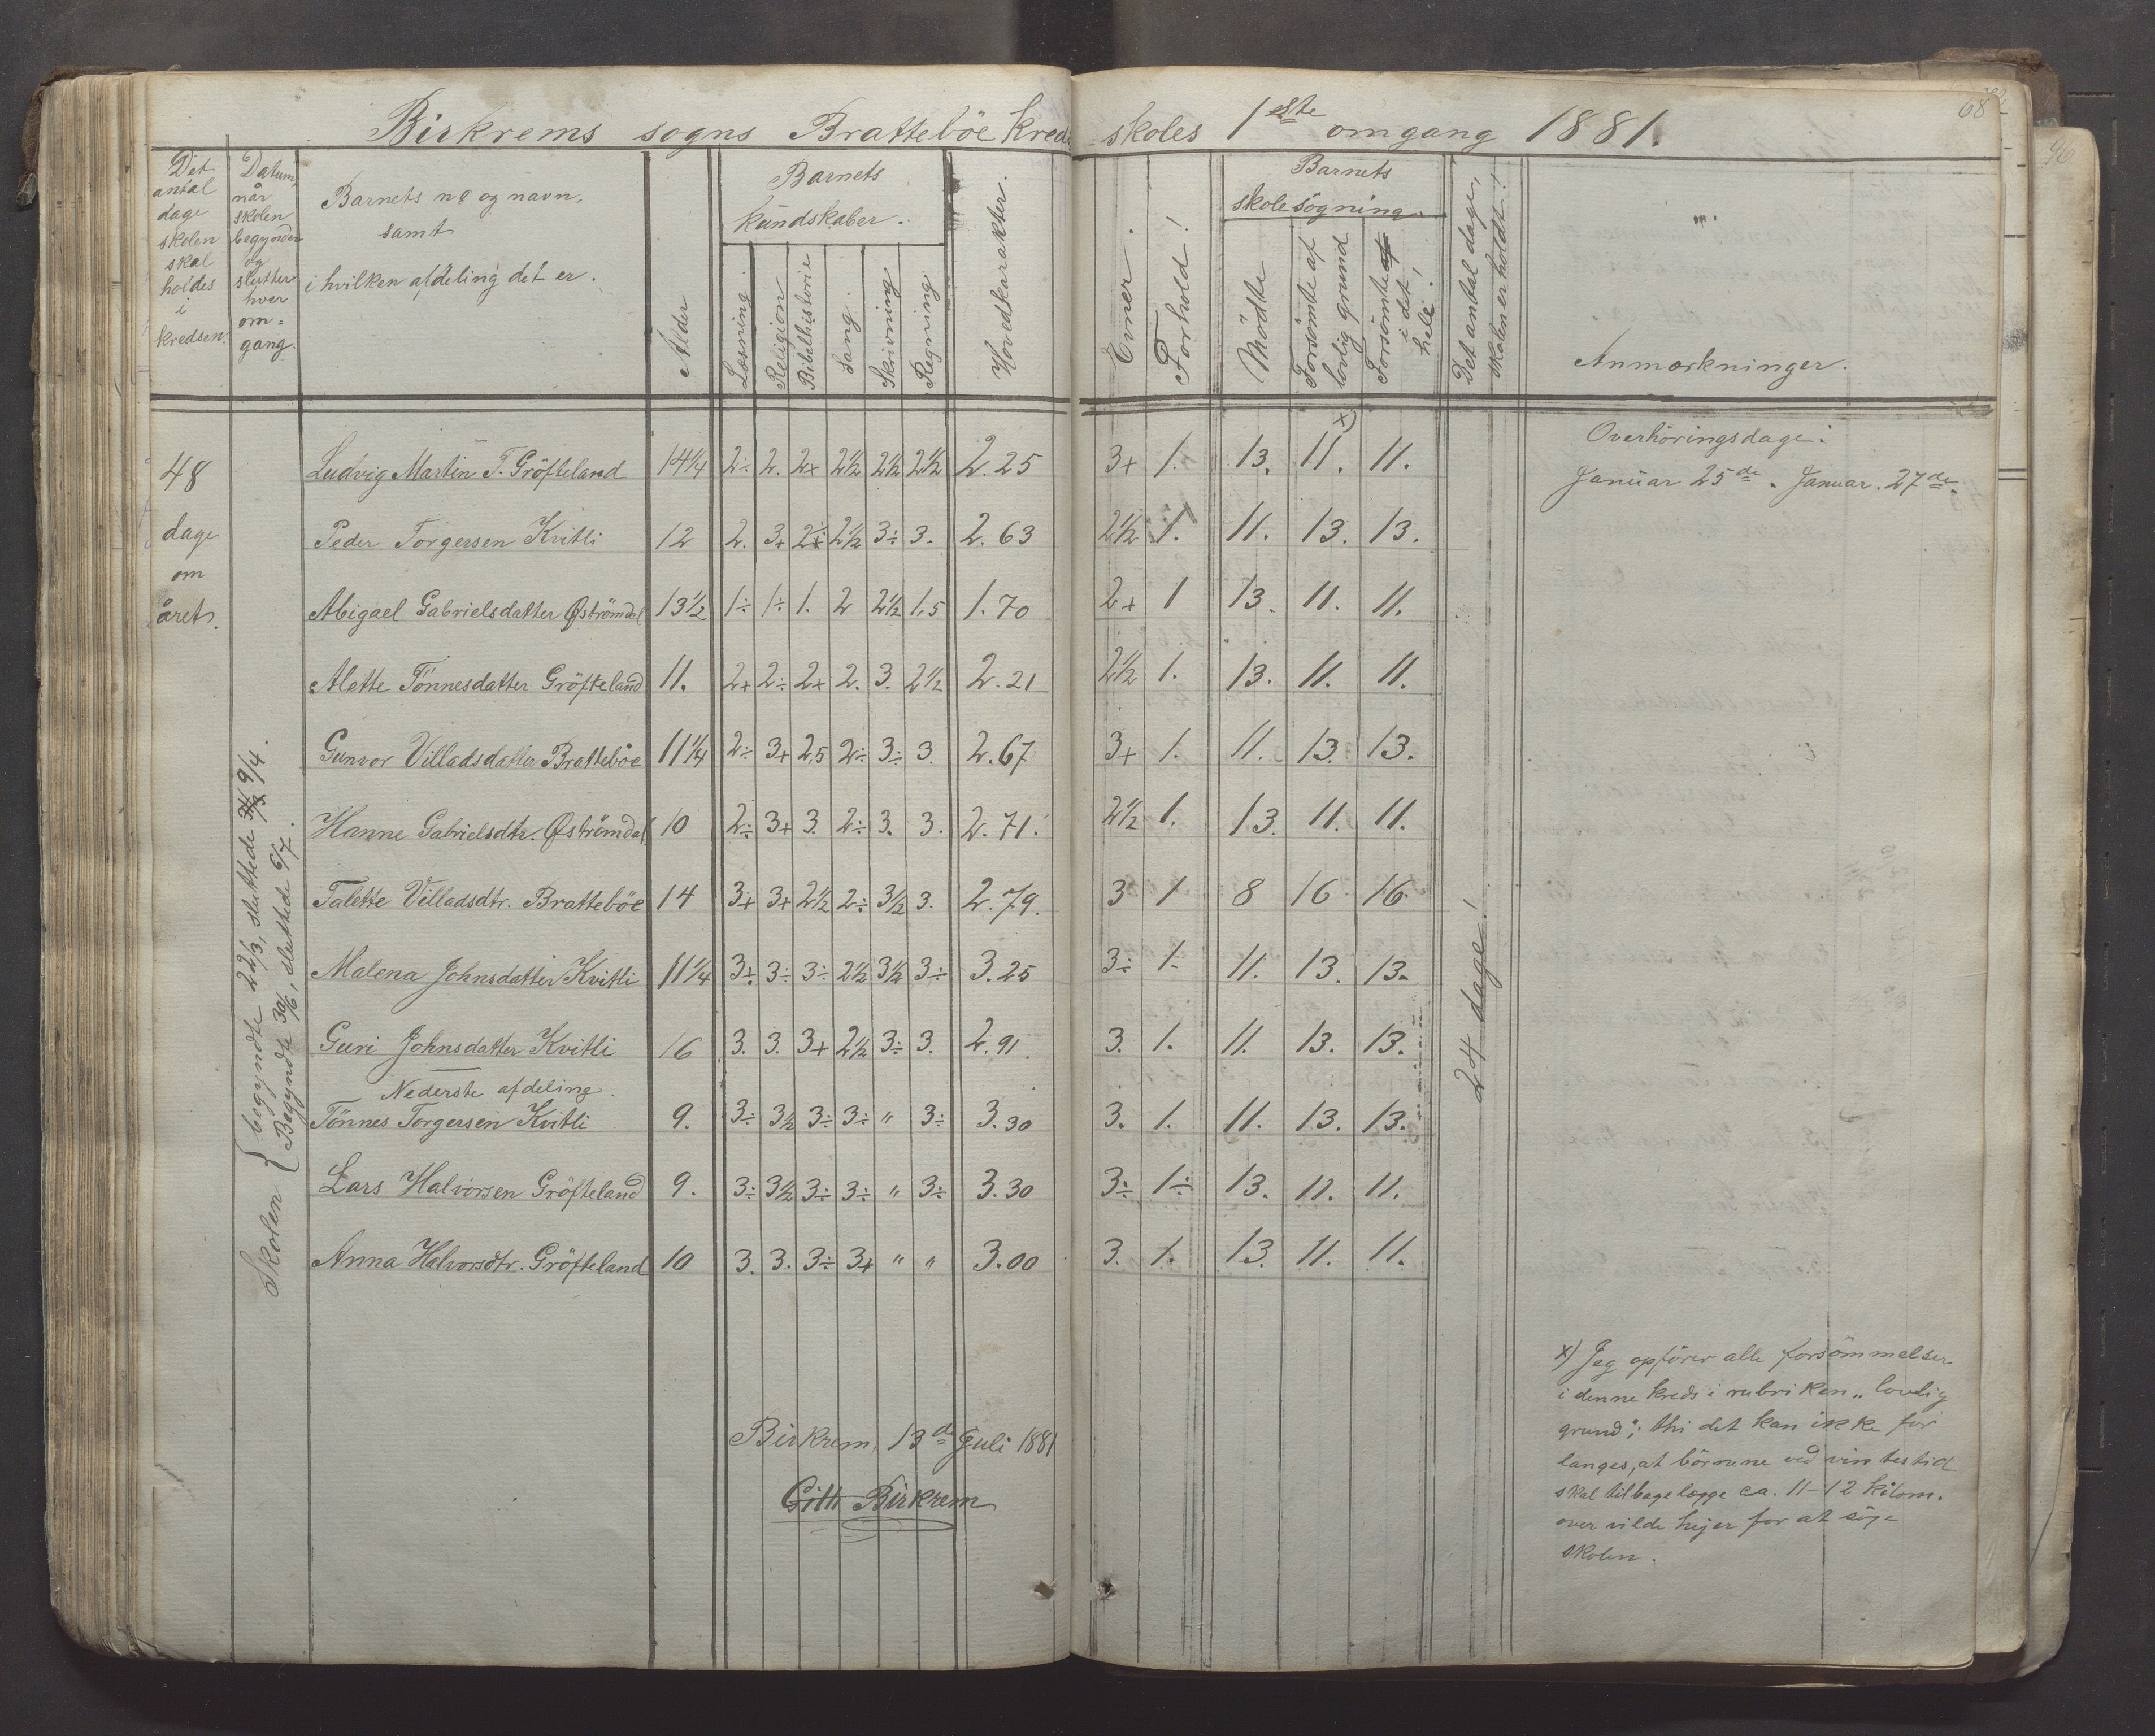 Birkrems sogns Bratteböe kreds- skoles 1ste omgang 1881.
68
96
Det antal dage skolen skal holdes i kredsen.
Datum, når skolen begynder og slutter hver om=gang.
Barnets no og navn,
samt
i hvilken afdeling det er.
Alder
Barnets kundskaber.
Læsning
Religion
Bibelhistorie
Sang.
Skrivning
Regning
Hovedkarakter.
Evner.
Forhold!
Barnets skolesögning.
Mödte
Forsömte af lovlig grund x)
Forsömte i det hele!
Det antal dage, skolen er holdt!
Anmærkninger.
48
dage
om
året.
Skolen { begyndte 22/3, sluttede 9/4.
Begyndte 30/6, sluttede 6/7.
Ludvig Martin T. Gröfteland 14¼ 2÷ 2. 2+ 2½ 2½ 2½ 2.25 3+ 1. 13. 11. 11.
Peder Torgersen Kvitli 12 2. 3+ 2÷ 2½ 3÷ 3. 2.63 2½ 1. 11. 13. 13.
Abigael Gabrielsdatter Øströmdal 13½ 1÷ 1÷ 1. 2 2½ 1,5 1.70 2+ 1 13. 11. 11.
Alette Tönnesdatter Gröfteland 11. 2+ 2÷ 2+ 2. 3. 2½ 2.21 2½ 1. 13. 11. 11.
Gunvor Villadsdatter Bratteböe 11¼ 2÷ 3+ 2,5 2÷ 3÷ 3. 2.67 3+ 1. 11. 13. 13.
Hanne Gabrielsdtr. Øströmdal 10 2÷ 3+ 3. 2÷ 3. 3. 2.71. 2½ 1. 13. 11. 11.
Talette Villadsdtr. Bratteböe 14 3+ 3+ 2½ 2÷ 3½ 3. 2.79. 3 1 8 16 16.
Malena Johnsdatter Kvitli 11¼ 3+ 3÷ 3÷ 2½ 3½ 3÷ 3.25 3÷ 1. 11. 13. 13.
Guri Johnsdatter Kvitli 16 3. 3. 3+ 2½ 3÷ 3. 2.91. 3. 1. 11. 13. 13.
Nederste afdeling.
Tönnes Torgersen Kvitli 9. 3÷ 3½ 3÷ 3÷ " 3÷ 3.30 3. 1. 11. 13. 13.
Lars Halvorsen Gröfteland 9. 3÷ 3½ 3÷ 3÷ " 3÷ 3.30 3÷ 1÷ 13. 11. 11.
Anna Halvorsdtr. Gröfteland 10 3. 3. 3÷ 3+ " " 3.00 3. 1. 13. 11. 11.
24 dage!
Overhöringsdage:
Januar 25de. Januar. 27de.
Birkrem, 13de Juli 1881
Birkrem
x) Jeg opförer alle forsömmelser
i denne kreds i rubriken „lovlig
grund“; thi det kan ikke for
langes, at börnene ved vintestid
skal tilbagelægge ca. 11-12 kilom.
over vilde hejer for at söge
skolen.